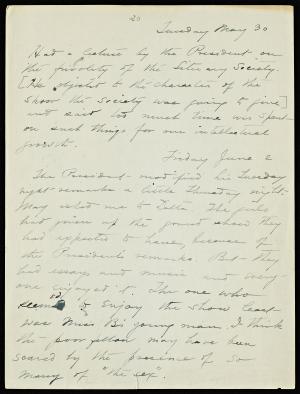 20
Tuesday May 30
Had a lecture by the President on
the frivolity of the Literary Society.
[He objected to the character of the
show the Society was going to give]
and said too much time was spent
on such things for our intellectual
growth.
Friday June 2
The President modified his Tuesday
night remarks a little Thursday night.
May asked me to Zeta. The girls
had given up the grand show they
had expected to have, because of
the President's remarks. But they
had essays and music and every-
one enjoyed it. The one who
seemed to enjoy the show least
was Miss B's young man. I think
the poor fellow may have been
scared by the presence of so
many of "the sex".